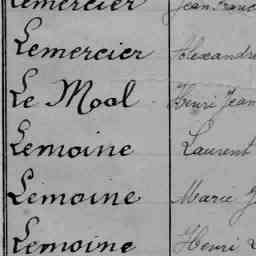 Lemercier Jean Franc
Lemercier Alexandre
Le Moal Henri Jean
Lemoine Laurent
Lemoine Marie J
Lemoine Henri L